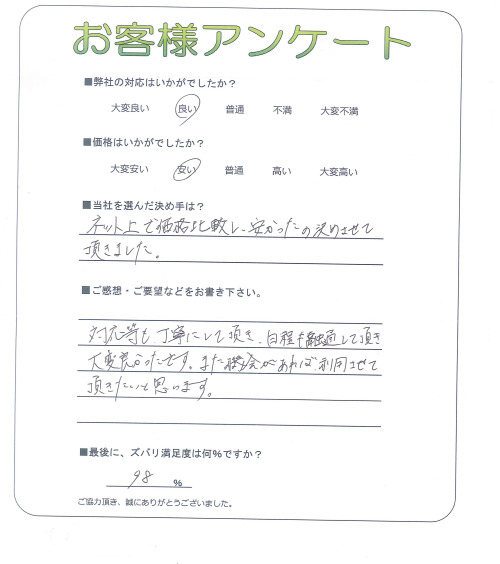 お客様アンケート
■弊社の対応はいかがでしたか？
大変良い 良い 普通 不満 大変不満
■価格はいかがでしたか？
大変安い 安い 普通 高い 大変高い
■当社を選んだ決め手は？
ネット上で価格比較し、安かったの決めさせて
頂きました。
■ご感想・ご要望などをお書き下さい。
対応等も、丁寧にして頂き、日程も融通して頂き
大変良かったです。また機会があれば、利用させて
頂きたいと思います。
■最後に、ズバリ満足度は何％ですか？
98 ％
ご協力頂き、誠にありがとうございました。